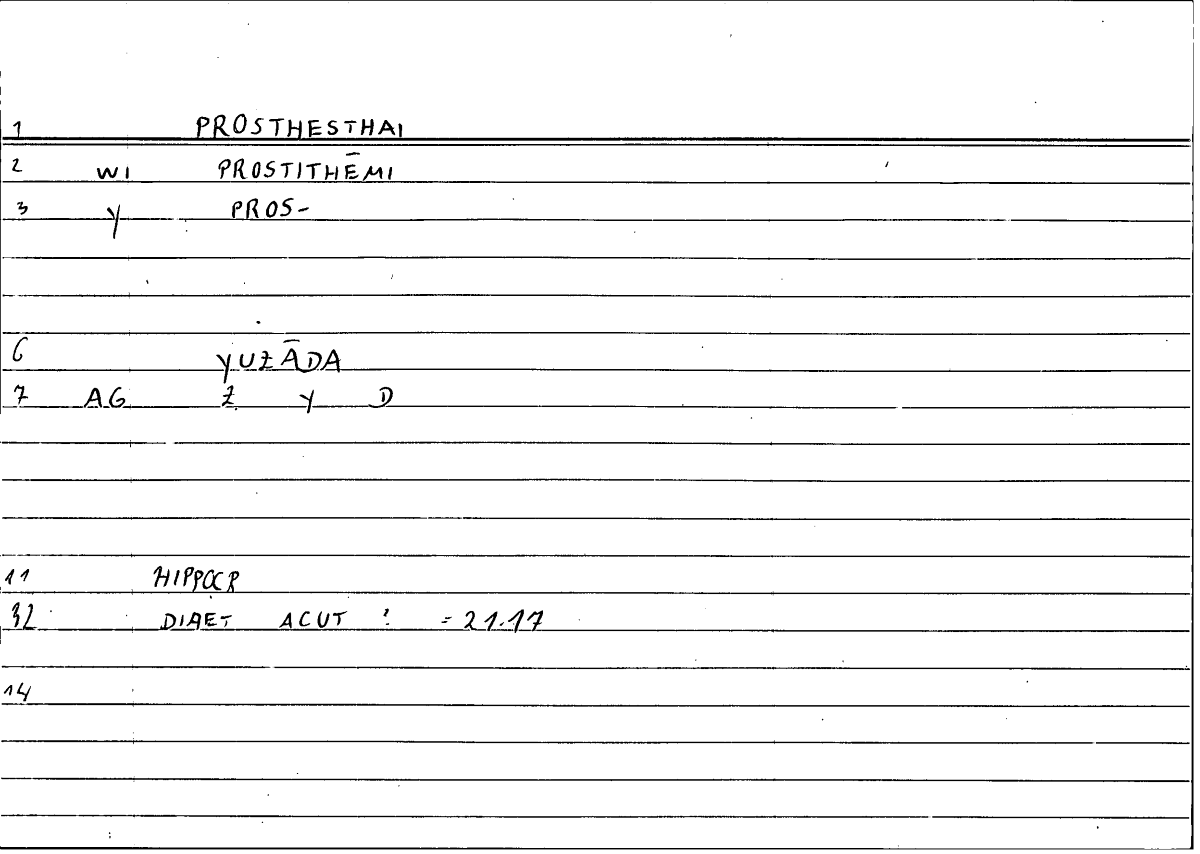 1 PROSTHESTHAI
2 WI PROSTITHĒMI
3 Y PROS-
6 YUZĀDA
7 AG Z Y D
11 HIPPOCR
32 DIAET ACUT : = 21.17
14